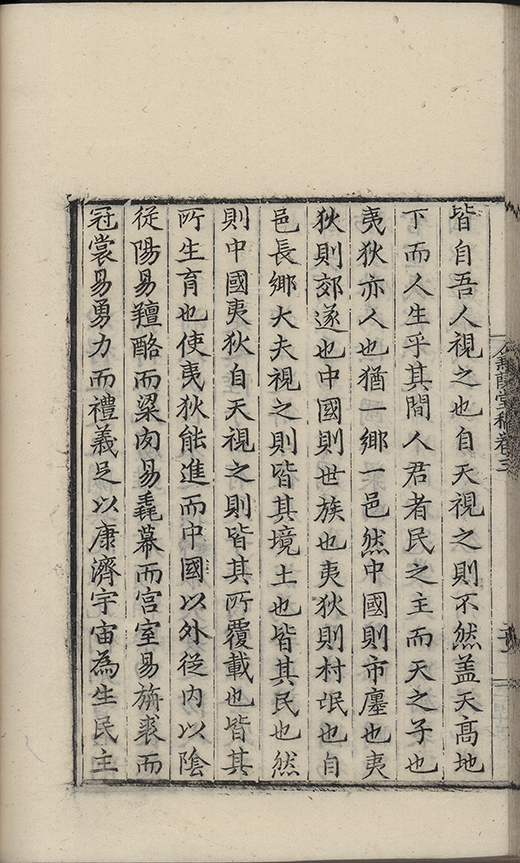 堂稿卷三
皆自吾人視之也自天視之則不然盖天髙地
下而人生乎其間人君者民之主而天之子也
夷狄亦人也猶一鄉一邑然中國則市廛也夷
狄則郊遂也中國則世族也夷狄則村氓也自
邑長鄉大夫視之則皆其境土也皆其民也然
則中國夷狄自天視之則皆其所覆載也皆其
所生育也使夷狄能進而中國以外從内以陰
從陽易羶酪而粱肉易毳幕而宫室易旃裘而
冠裳易勇力而禮義足以康濟宇宙為生民主